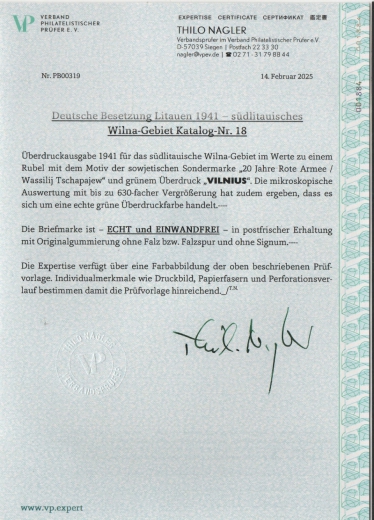 VP VERBAND
PHILATELISTISCHER
PRÜFER E. V.
EXPERTISE CERTIFICATE СЕРТИФИКАТ 鑑定書
THILO NAGLER
Verbandsprüfer im Verband Philatelistischer Prüfer e.V.
D-57039 Siegen | Postfach 22 33 30
nagler@vpev.de | ☎ 02 71 - 31 79 88 44
Nr. PB00319
14. Februar 2025
001884
Deutsche Besetzung Litauen 1941 – südlitauisches
Wilna-Gebiet Katalog-Nr. 18
Überdruckausgabe 1941 für das südlitauische Wilna-Gebiet im Werte zu einem
Rubel mit dem Motiv der sowjetischen Sondermarke „20 Jahre Rote Armee /
Wassilij Tschapajew“ und grünem Überdruck „VILNIUS“. Die mikroskopische
Auswertung mit bis zu 630-facher Vergrößerung hat zudem ergeben, dass es
sich um eine echte grüne Überdruckfarbe handelt.—
Die Briefmarke ist – ECHT und EINWANDFREI – in postfrischer Erhaltung
mit Originalgummierung ohne Falz bzw. Falzspur und ohne Signum.—
Die Expertise verfügt über eine Farbabbildung der oben beschriebenen Prüf-
vorlage. Individualmerkmale wie Druckbild, Papierfasern und Perforationsver-
lauf bestimmen damit die Prüfvorlage hinreichend._/T.N.
THILO NAGLER
VP
Thilo Nagler
www.vp.expert